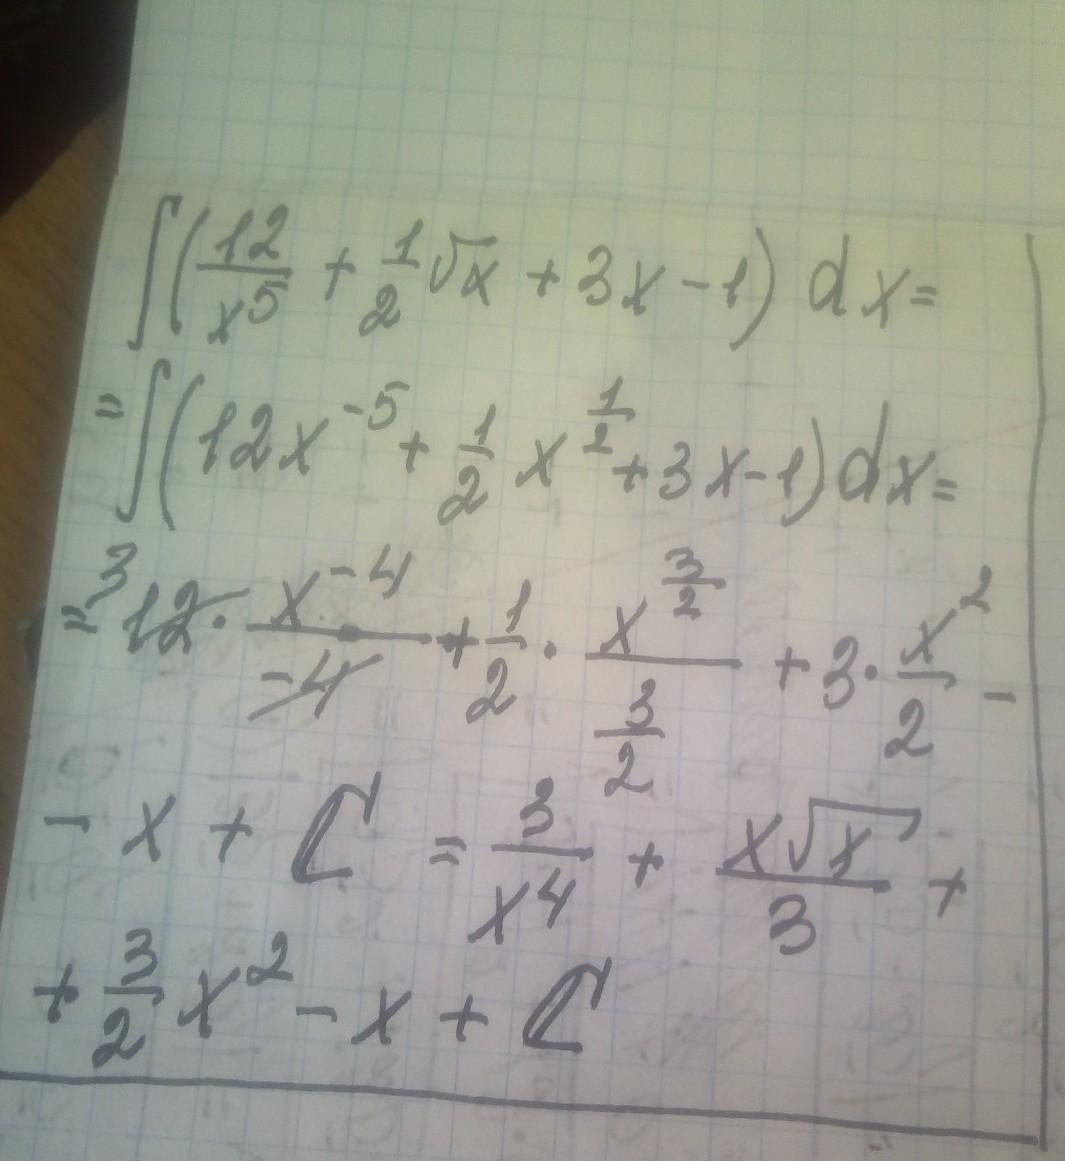 ∫(12/x⁵ + 1/2 √x + 3x - 1) dx =
= ∫(12x⁻⁵ + 1/2 x^(1/2) + 3x - 1) dx =
= ³12 · x⁻⁴/-4 + 1/2 · x^(3/2)/(3/2) + 3 · x²/2 -
- x + C = 3/x⁴ + x√x/3 +
+ 3/2 x² - x + C